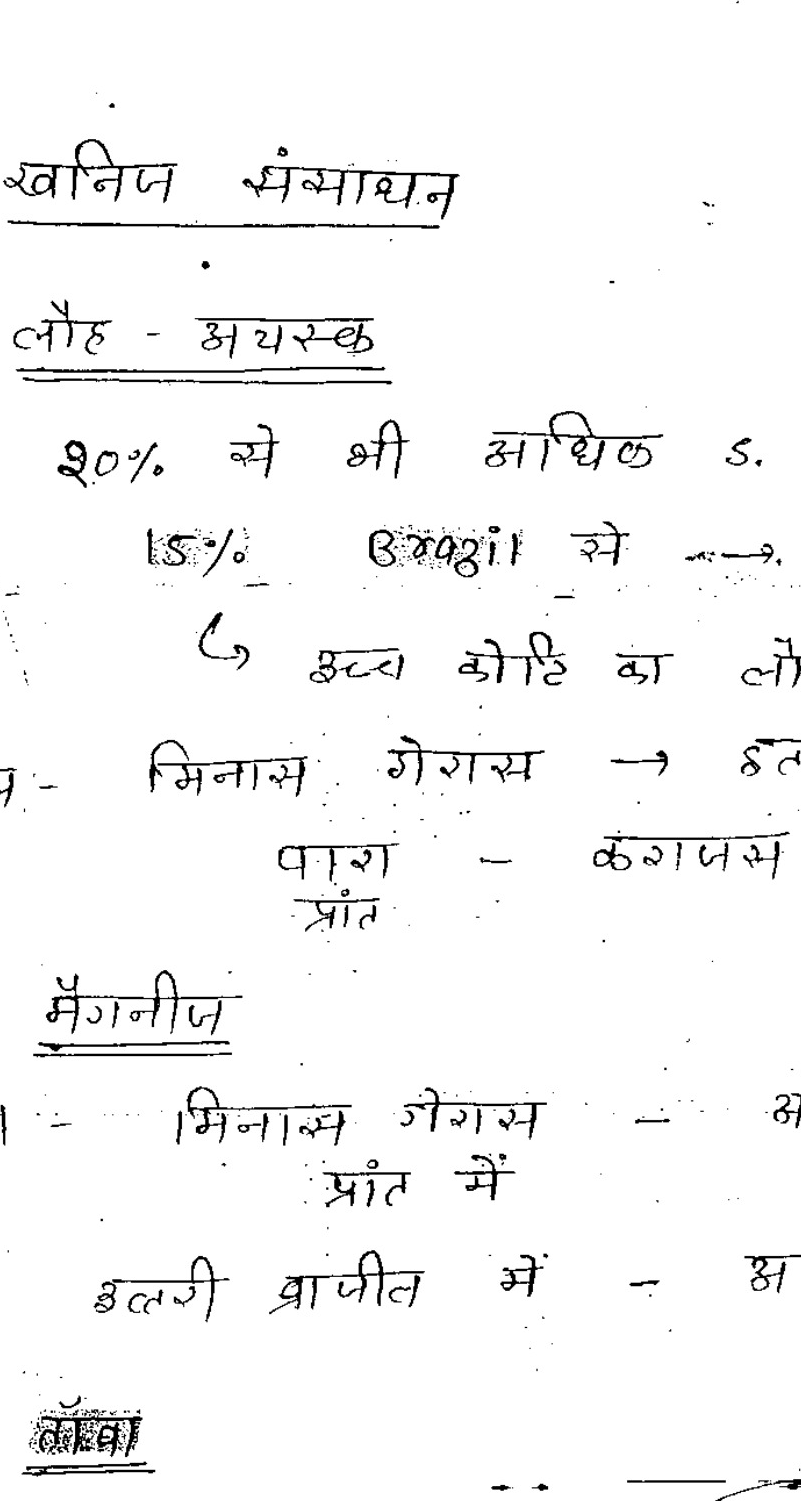 खनिज संसाधन
लौह - अयस्क
20% से भी अधिक S.
15% Brazil से →
↳ उच्च कोटि का लौ
:- मिनास गेरास →
पारा - कराजस
प्रांत
मैगनीज
:- मिनास गेरास - अ
प्रांत में
उत्तरी ब्राजील में - अ
ताँबा